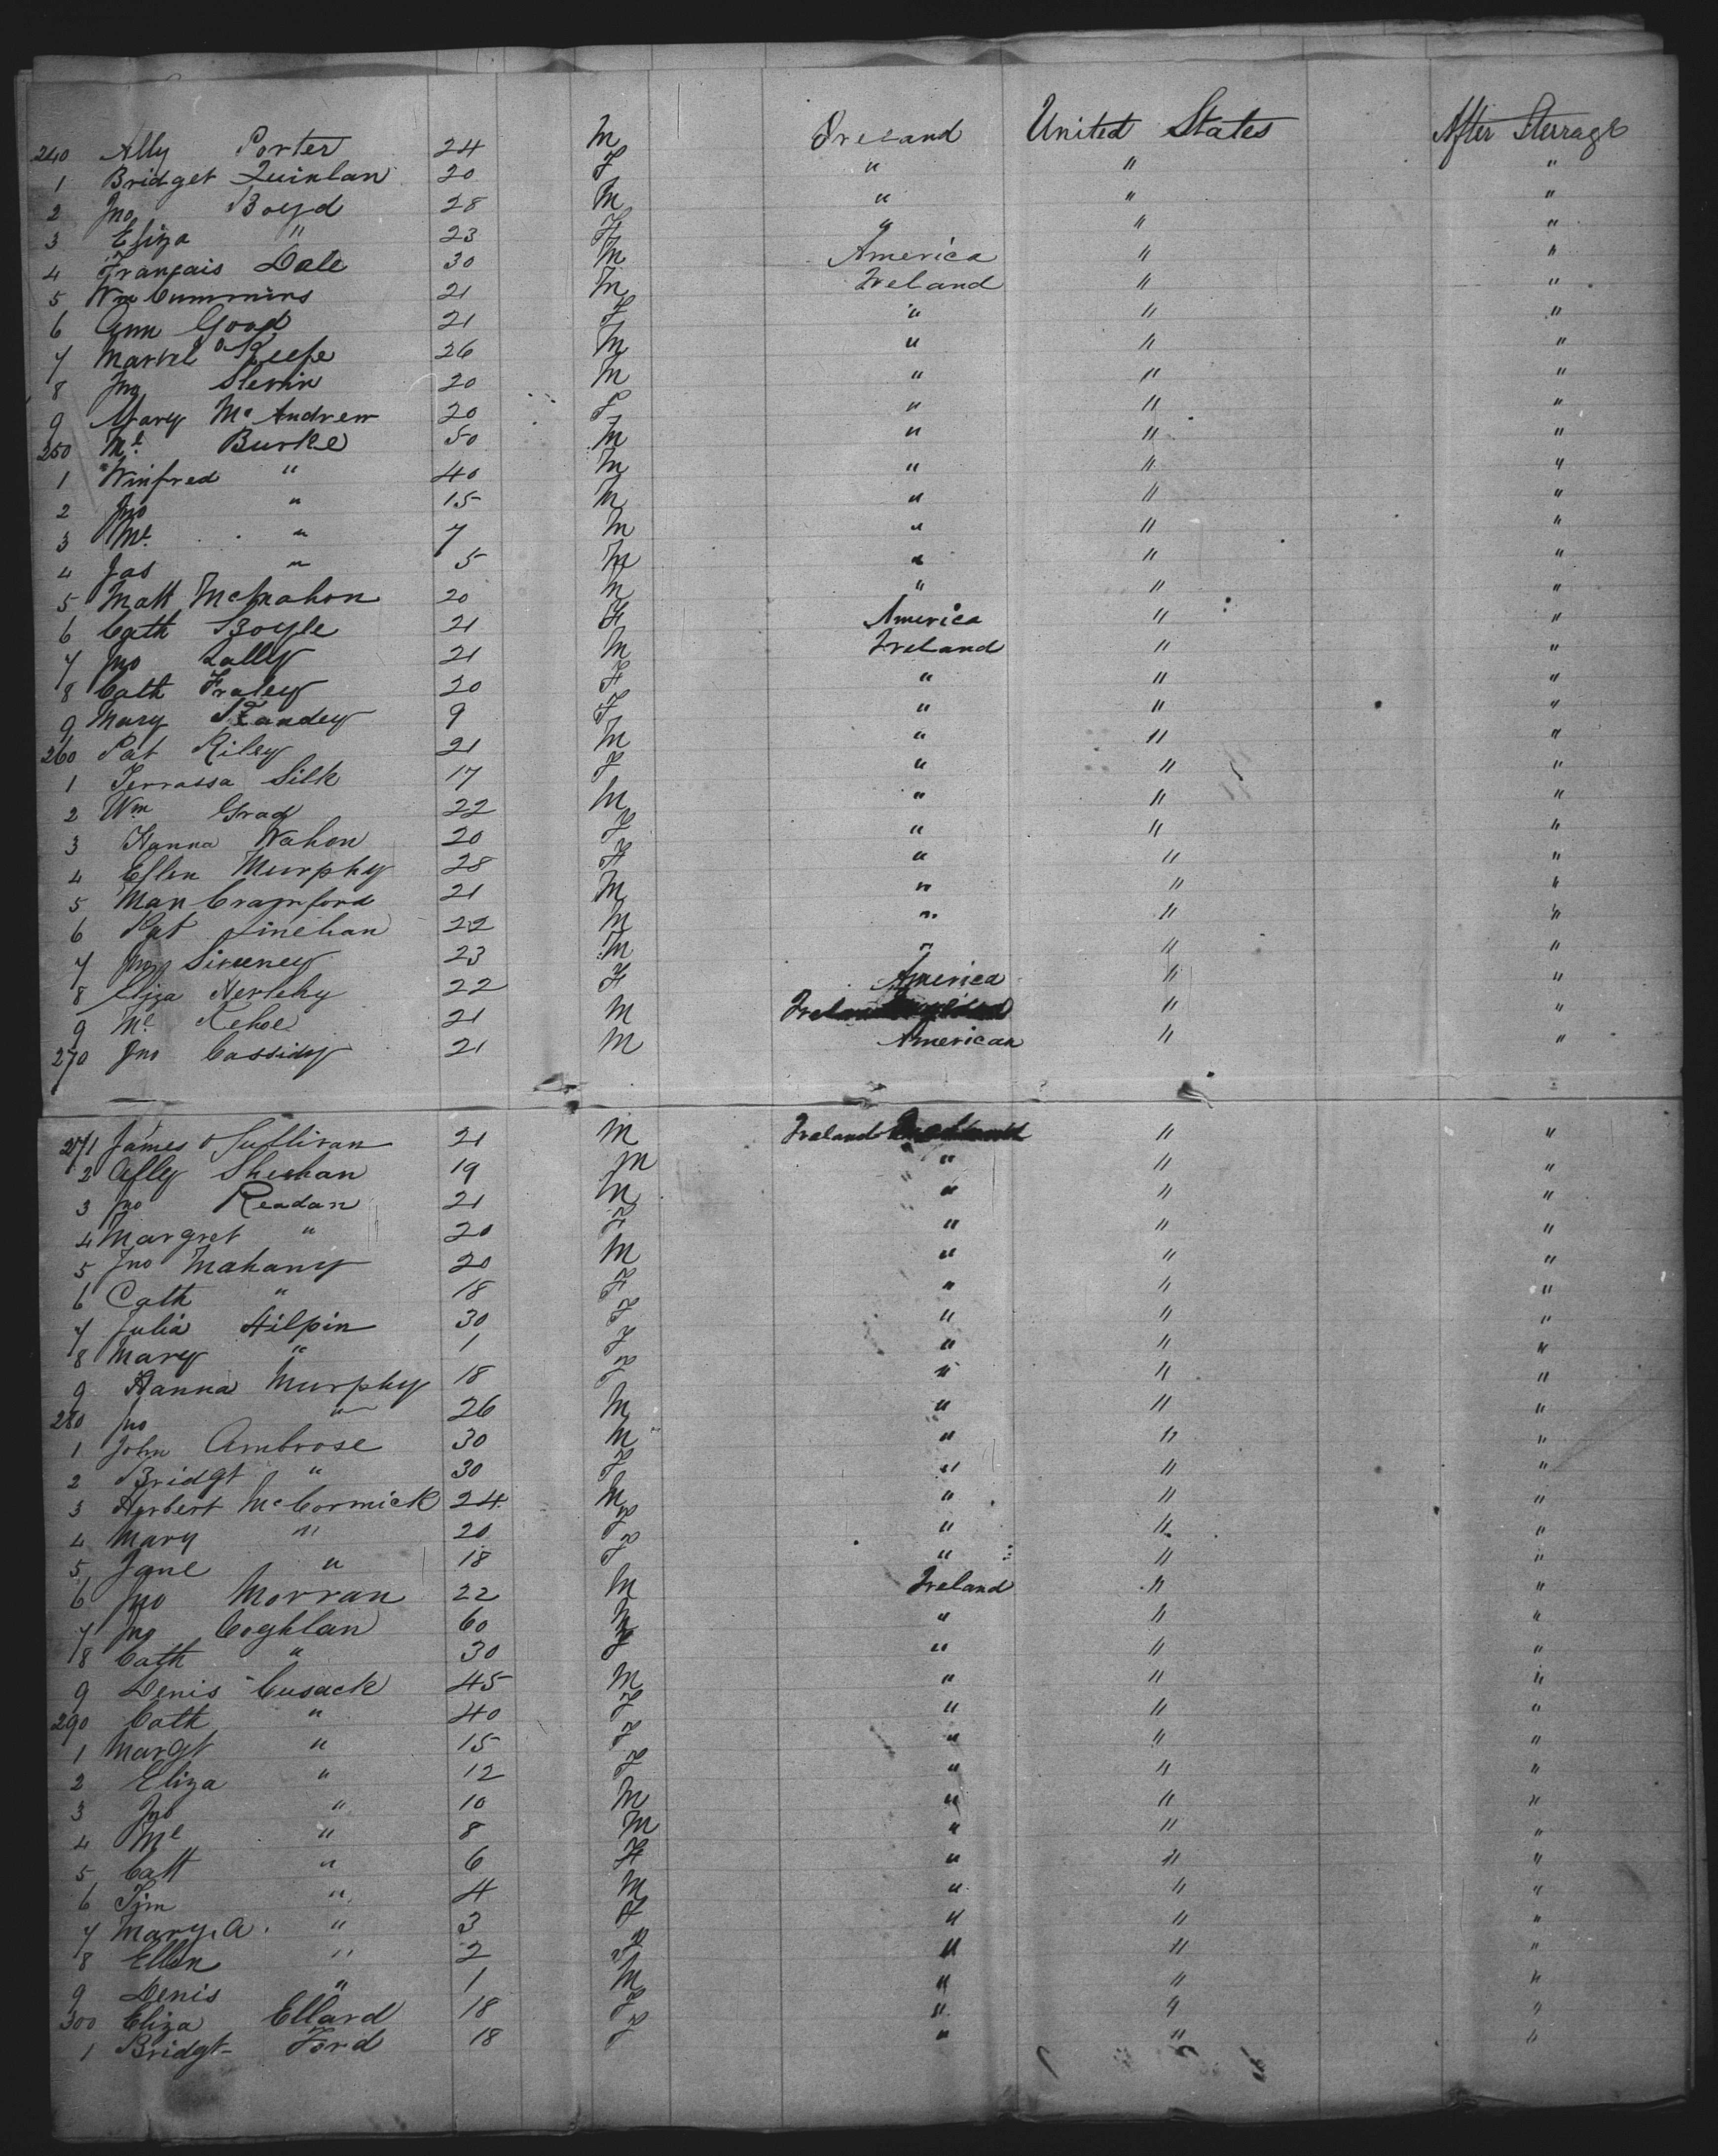 240 Ally Porter 24 M Ireland United States After Sterrage
1 Bridget Quinlan 20 F " " "
2 Jno Boyd 28 M " " "
3 Eliza " 23 F " " "
4 Français Dale 30 M America " "
5 Wm Cummins 21 M Ireland " "
6 Ann Good 21 F " " "
7 O'Keefe 26 M " " "
8 Jno Slevin 20 M " " "
9 Mary McAndrew 20 F " " "
250 Ml Burke 50 M " " "
1 Winfred " 40 M " " "
2 Jno " 15 M " " "
3 Ml " 7 M " " "
4 Jas " 5 M " " "
5 Matt McMahon 20 M " " "
6 Cath Boyle 21 F America " "
7 Jno Lally 21 M Ireland " "
8 Cath Fraley 20 F " " "
9 Mary 9 F " " "
260 Pat Riley 21 M " " "
1 Terrassa Silk 17 F " " "
2 Wm Grady 22 M " " "
3 Hanna Wahon 20 F " " "
4 Ellen Murphy 28 F " " "
5 Man Crawford 21 M " " "
6 Pat Linehan 22 M " " "
7 Jno Sweeney 23 M " " "
8 Eliza Herlehy 22 F America " "
9 Ml Kehoe 21 M Ireland " "
270 Jno Cassidy 21 M American " "
271 James O Sullivan 21 M Ireland " "
2 Ally Sheehan 19 M " " "
3 Jno Readan 21 M " " "
4 Margret " 20 F " " "
5 Jno Mahany 20 M " " "
6 Cath " 18 F " " "
7 Julia Hilpin 30 F " " "
8 Mary " 1 F " " "
9 Hanna Murphy 18 F " " "
280 Jno " 26 M " " "
1 John Ambrose 30 M " " "
2 Bridgt " 30 F " " "
3 Herbert McCormick 24 M " " "
4 Mary " 20 F " " "
5 Jane " 18 F " " "
6 Jno Morran 22 M Ireland " "
7 Jno Coghlan 60 M " " "
8 Cath " 30 F " " "
9 Denis Cusack 45 M " " "
290 Cath " 40 F " " "
1 Margt " 15 F " " "
2 Eliza " 12 F " " "
3 Jno " 10 M " " "
4 Ml " 8 M " " "
5 Catt " 6 F " " "
6 Tim " 4 M " " "
7 Mary A. " 3 F " " "
8 Ellen " 2 F " " "
9 Denis " 1 M " " "
300 Eliza Ellard 18 F " " "
1 Bridgt Ford 18 F " " "